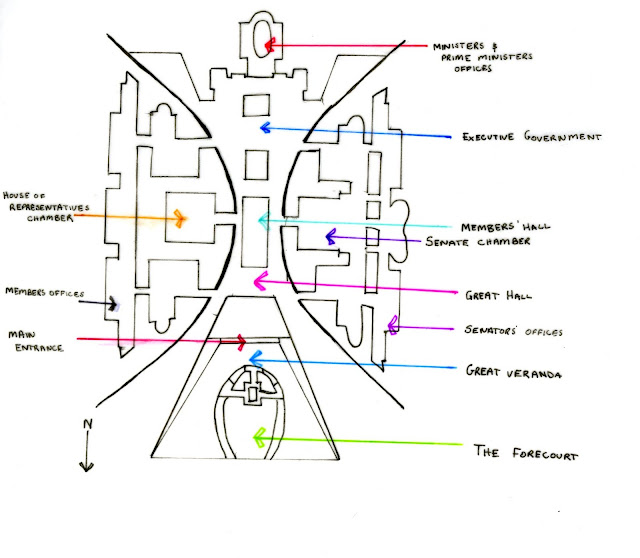 MINISTERS &
PRIME MINISTERS
OFFICES
EXECUTIVE GOVERNMENT
HOUSE OF
REPRESENTATIVES
CHAMBER
MEMBERS' HALL
SENATE CHAMBER
MEMBERS OFFICES
GREAT HALL
SENATORS' OFFICES
MAIN
ENTRANCE
GREAT VERANDA
N
THE FORECOURT